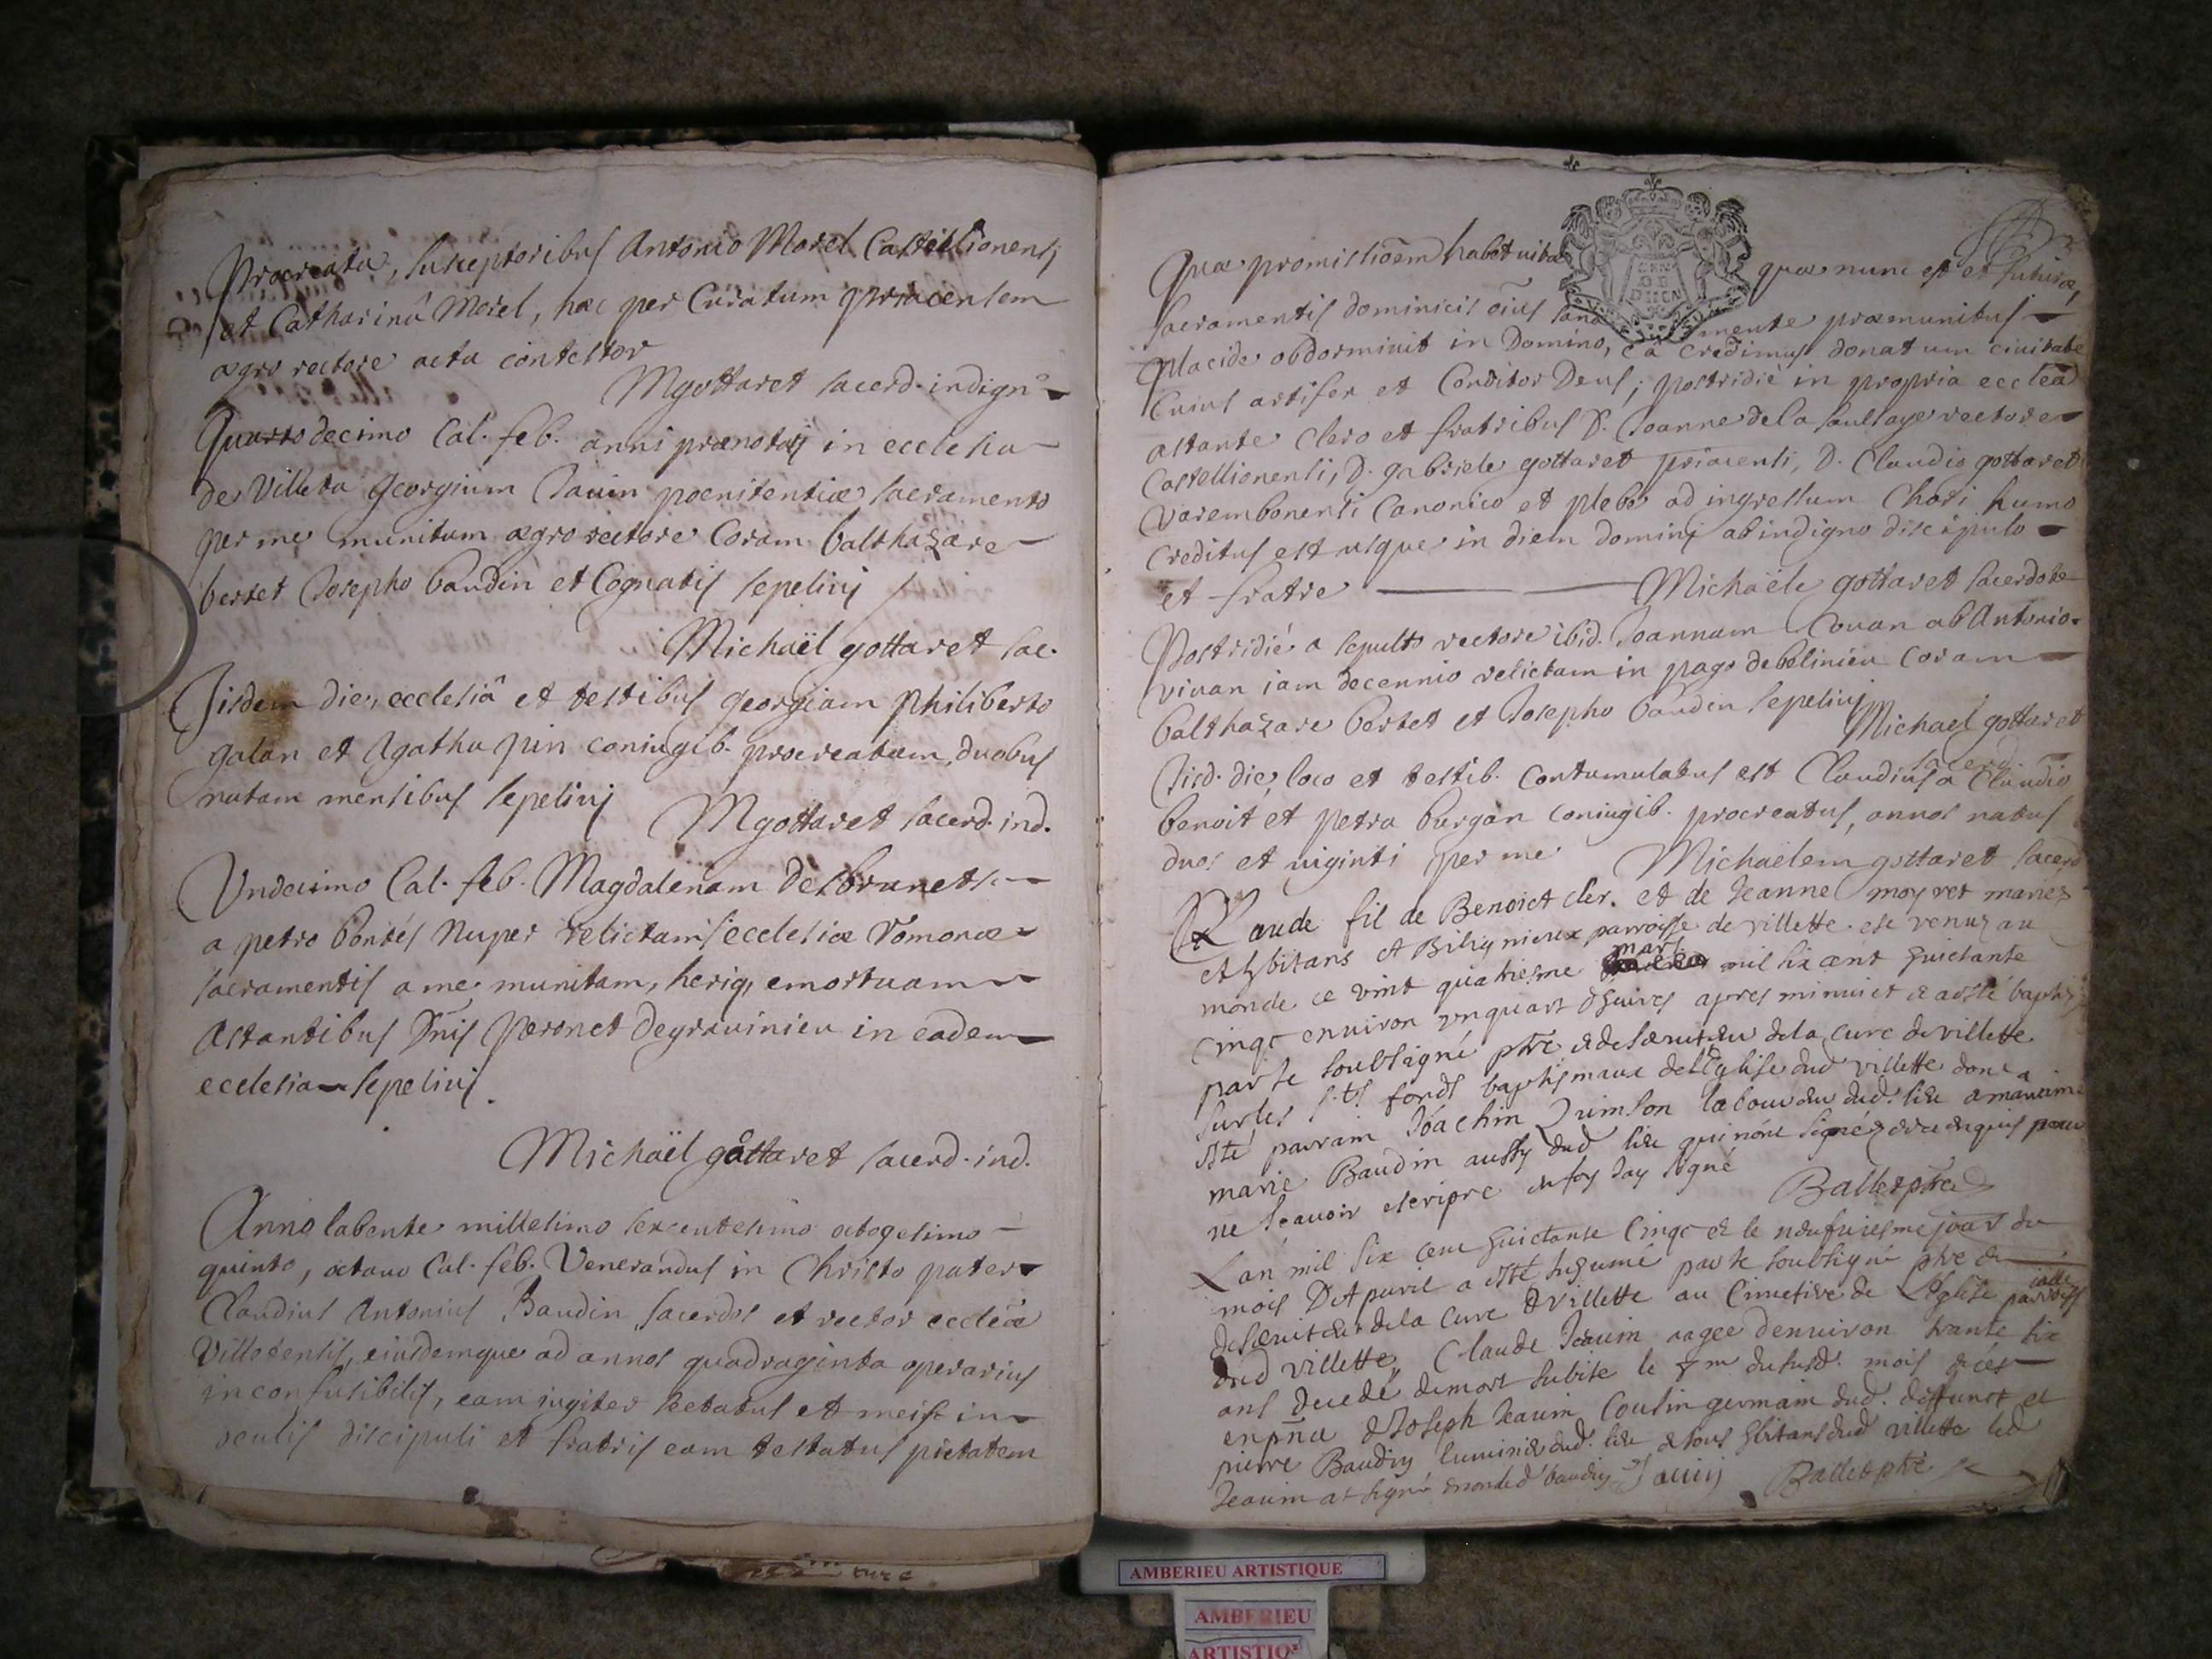 Procreata, susceptoribus Antonio Morel Castillionensi
et Catharinâ Morel, hac per Curatum priacensem
ægro rectore acta contestor
Mgottaret sacerd. indign.
Quarto decimo Cal. feb. anni prænotati in ecclesia
de Villeta Georgium Jauin poenitentiæ sacramento
per me munitum ægro rectore Coram balthazare
bertet Josepho baudin et Cognatis sepelivi
Michaël gottaret sac.
Iisdem die, ecclesiâ et testibus georgiam Philiberto
galan et Agatha pin coniugib. procreatam, duobus
natam mensibus sepelivi
Mgottaret sacerd. ind.
Undecimo Cal. feb. Magdalenam desbrunets
a petro nuper relictam ecclesiæ romanæ
sacramentis a me munitam, heriq, emortuam
Astantibus Dnis peronet degrauinieu in eadem
ecclesia sepelivi.
Michaël gottaret sacerd. ind.
Anno labente millesimo sexcentesimo octogesimo
quinto, octavo Cal. feb. Venerandus in Christo pater
Claudius Antonius Baudin sacerdos et rector eccleæ
Villetensis, eiusdemque ad annos quadraginta operarius
inconfusibilis, eam iugiter sectatus et meis in
oculis discipuli et fratris eam testatus pietatem
Quæ promissioem habet vitæ quæ nunc est et futuræ,
sacramentis dominicis oius sana mente præmunitus
placide obdormivit in Domino, eâ credimus donatum civitate
Cuius artifex et Conditor Deus; postridie in propria ecclea
astante Clero et fratribus D. Joanne de la saulsaye rectore
Castellionensi, D. gabriele gottaret priacensi, D. Claudio gottaret
Varembonensi Canonico et plebe ad ingressum Chori humo
Creditus est usque in diem domini ab indigno discipulo
et fratre Michaële gottaret sacerdote
Postridié a sepulto rectore ibid. Joannam viuan ab Antonio
viuan iam decennio relictam in pago de belinieu coram
balthazare bertet et Josepho baudin sepelivi
Michael gottaret
sacerd
Iisd. die, loco et testib. Contumulatus est Claudius a Claudio
benoit et petra burgan coniugib. procreatus, annos natus
duos et viginti per me Michaëlem gottaret sacerd
Claude fil de Benoict cler. et de Jeanne moyret mariez
et hbitans a Bilignieux parroisse de villette est venuz au
monde ce vint quatriesme mars mil six cent huictante
cinqc environ un quart d'heures apres minuict et a esté baptizé
par le soubsigné ptre et deseruiteur de la cure de villette
sur les sts fonds baptismaux de l'Eglise dud villette dont a
esté parrain Joachim Quinson laboureur dud. lieu a marrine
marie Baudin aussy dud lieu qui n'ont signé enquis pour
ne scauoir escripre en foy jay signé Ballet ptre
L an mil six cent huictante Cinqc et le neufuiesme jour du
mois D'apuril a esté inhumé par le soubsigné ptre et
deseruiteur de la Cure de Villette au Cimetiere de L'église parroiss
dud villette, Claude Jeauin aagee d'enuiron trante six
ans decedé de mort subite le mesme dususd. mois et ces
en pñce de Joseph Jeauin Cousin germain dud. deffunct et
pierre Baudin luminier dud. lieu et tous hbitans dud villette led
Jeauin at signé et non led baudin Jauin Ballet ptre
AMBERIEU ARTISTIQUE
AMBERIEU
ARTISTIQ